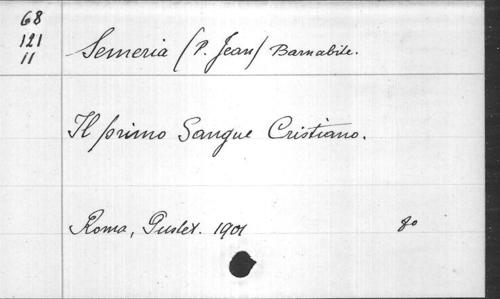 68
121
11
Semeria (P. Jean) Barnabite.
Il primo Sangue Cristiano.
Roma, Pustet. 1901 8o